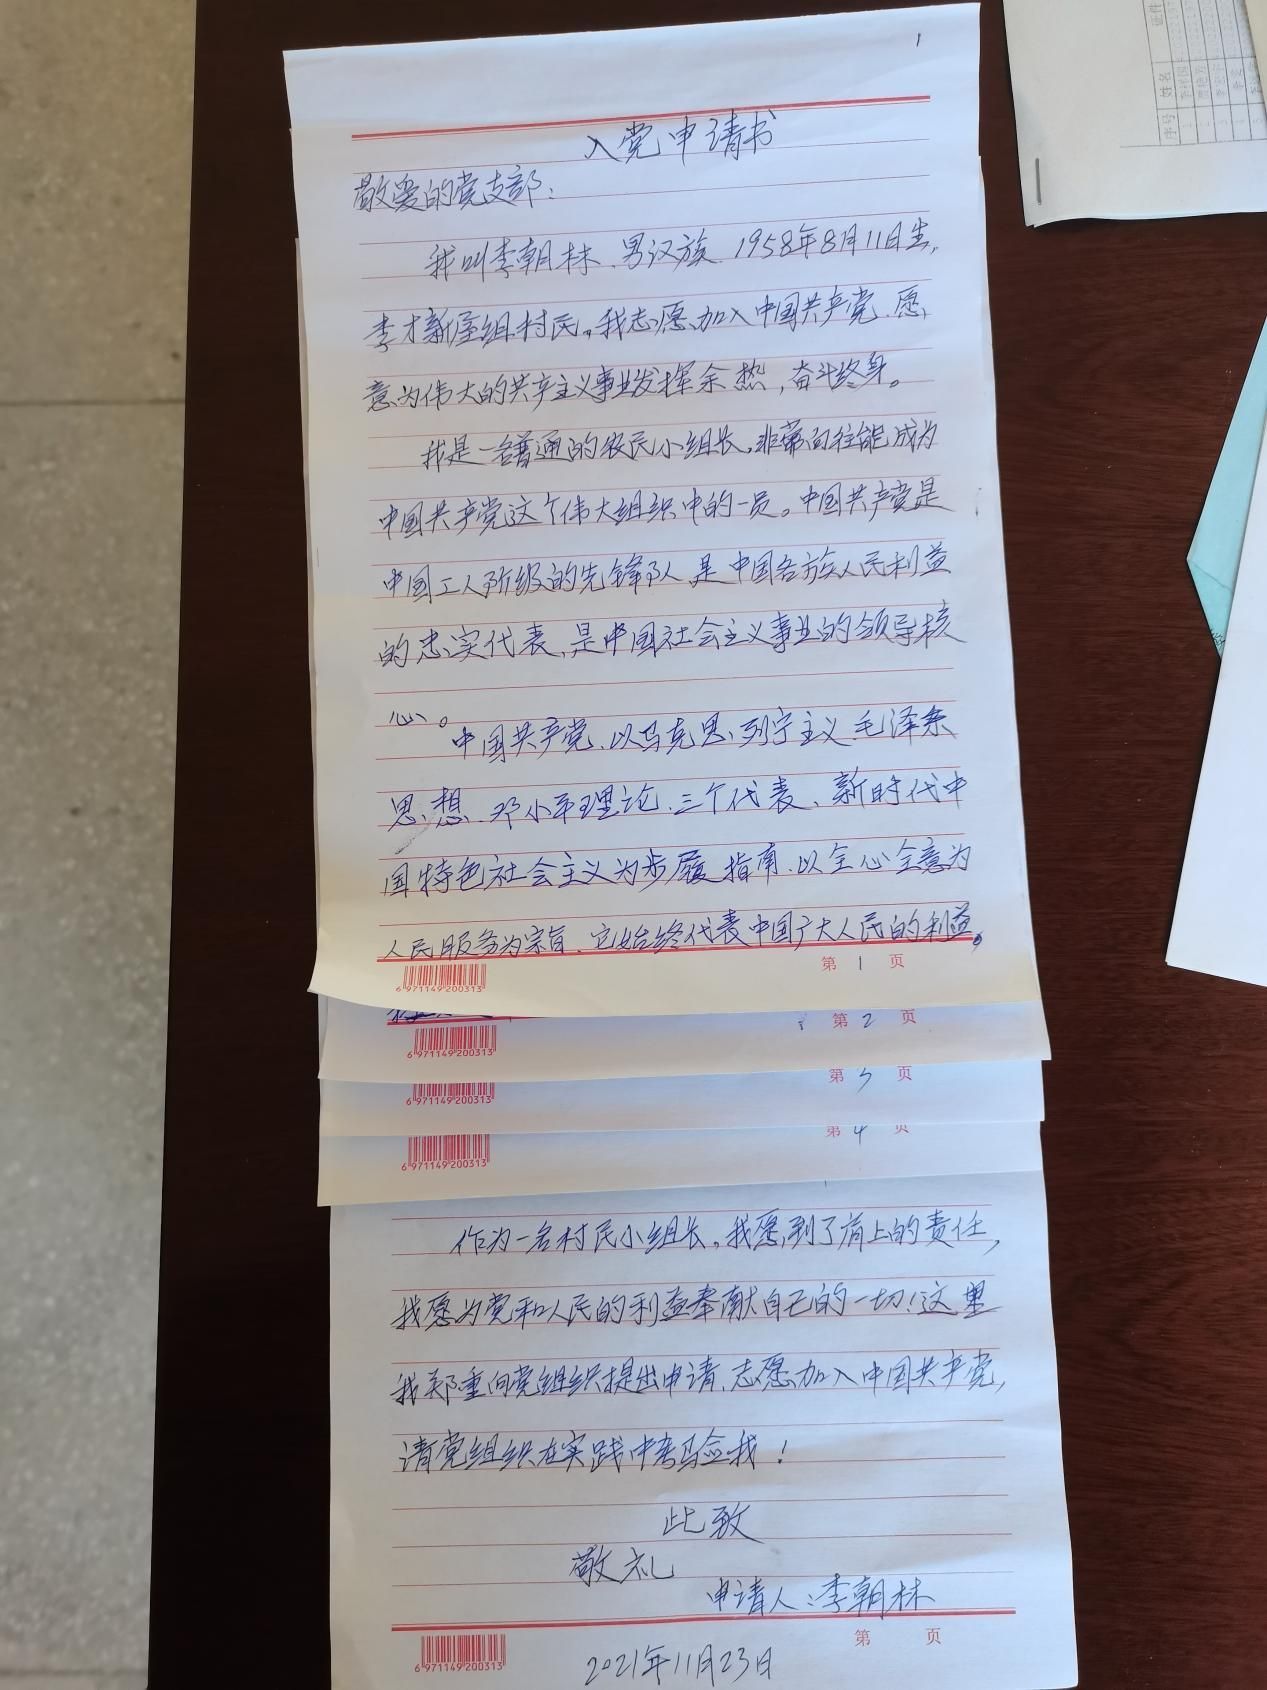 1
入党申请书
敬爱的党支部：
我叫李朝林、男汉族、1958年8月11日生,
李才新屋组村民。我志愿加入中国共产党、愿
意为伟大的共产主义事业发挥余热，奋斗终身。
我是一名普通的农民小组长，非常向往能成为
中国共产党这个伟大组织中的一员。中国共产党是
中国工人阶级的先锋队、是中国各族人民利益
的忠实代表、是中国社会主义事业的领导核
心。
中国共产党、以马克思、列宁主义、毛泽东
思想、邓小平理论、三个代表、新时代中
国特色社会主义为步履指南、以全心全意为
人民服务为宗旨、它始终代表中国广大人民的利益。
第 1 页
6 971149 200313
第 2 页
6 971149 200313
第 3 页
6 971149 200313
第 4 页
6 971149 200313
作为一名村民小组长，我愿到了肩上的责任，
我愿为党和人民的利益奉献自己的一切！这里
我郑重向党组织提出申请、志愿加入中国共产党，
请党组织在实践中考验我！
此致
敬礼
申请人：李朝林
第 页
6 971149 200313
2021年11月23日
序号 姓名 证件